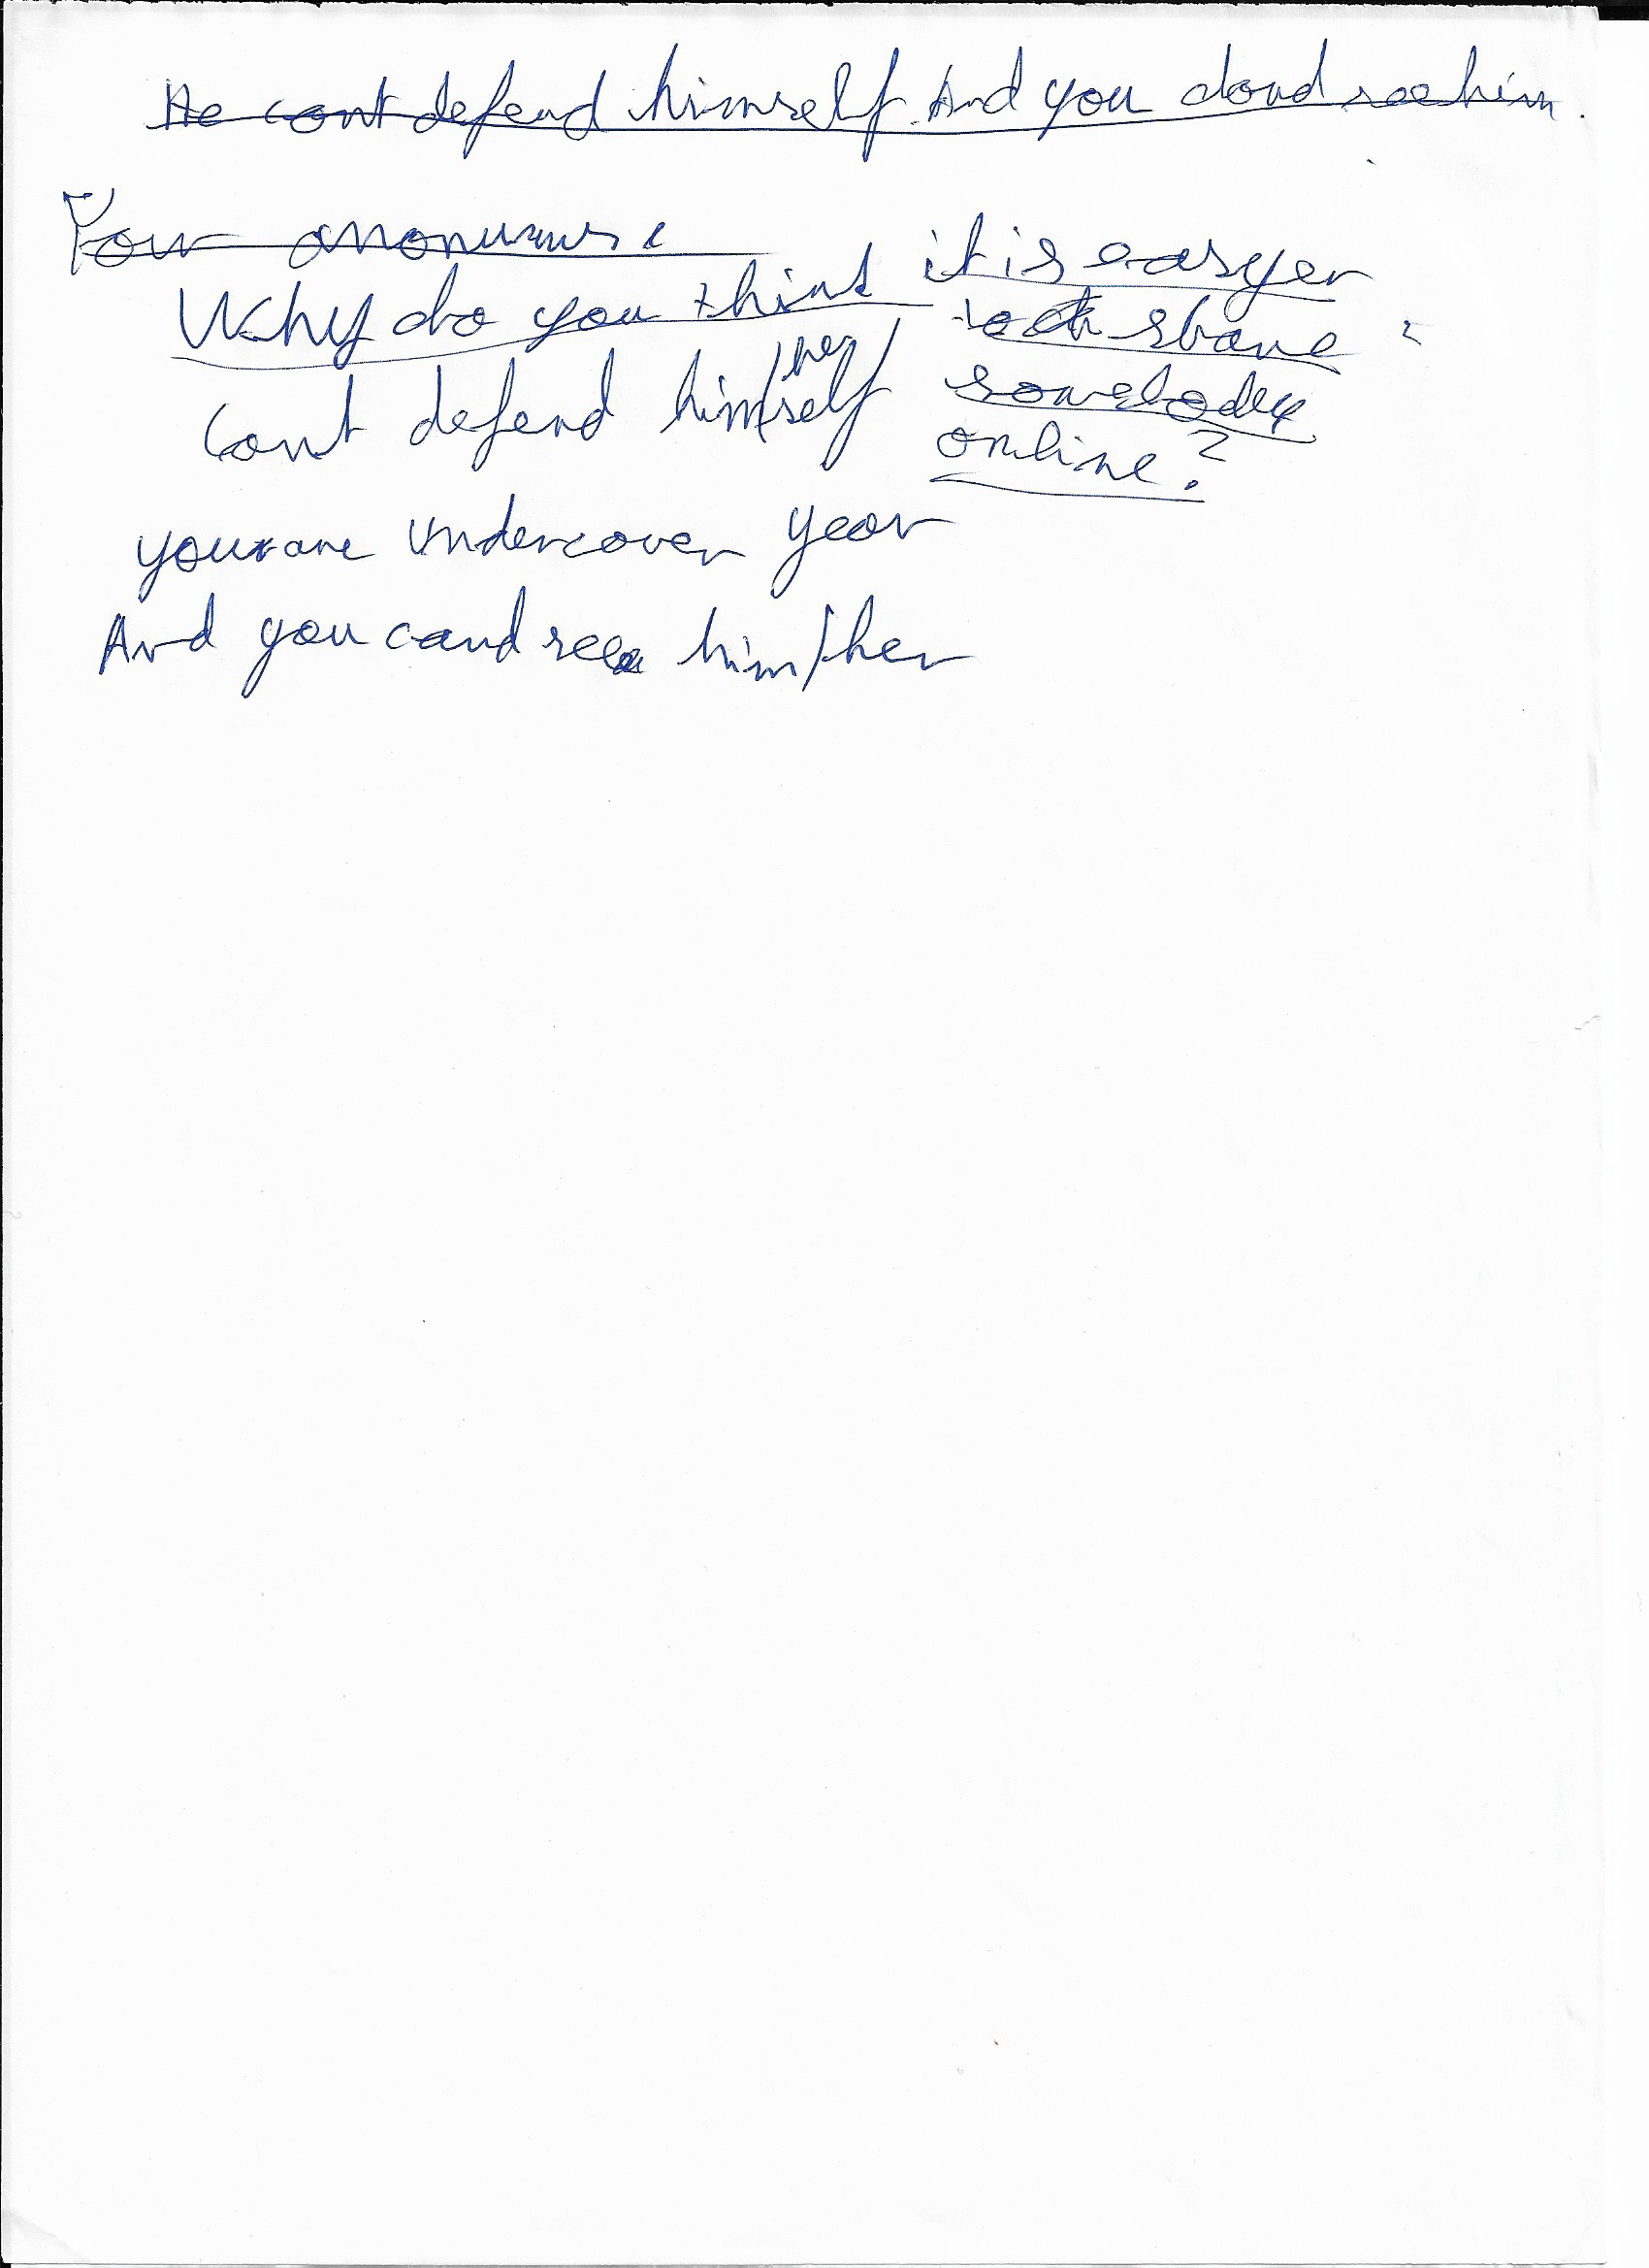 He cant defend himself. And you dond see him.
Your anonumus
Why do you think it is easyer
to shame
somebody
online?
Cant defend him/her/self
you are undercover year
And you cand see him/her